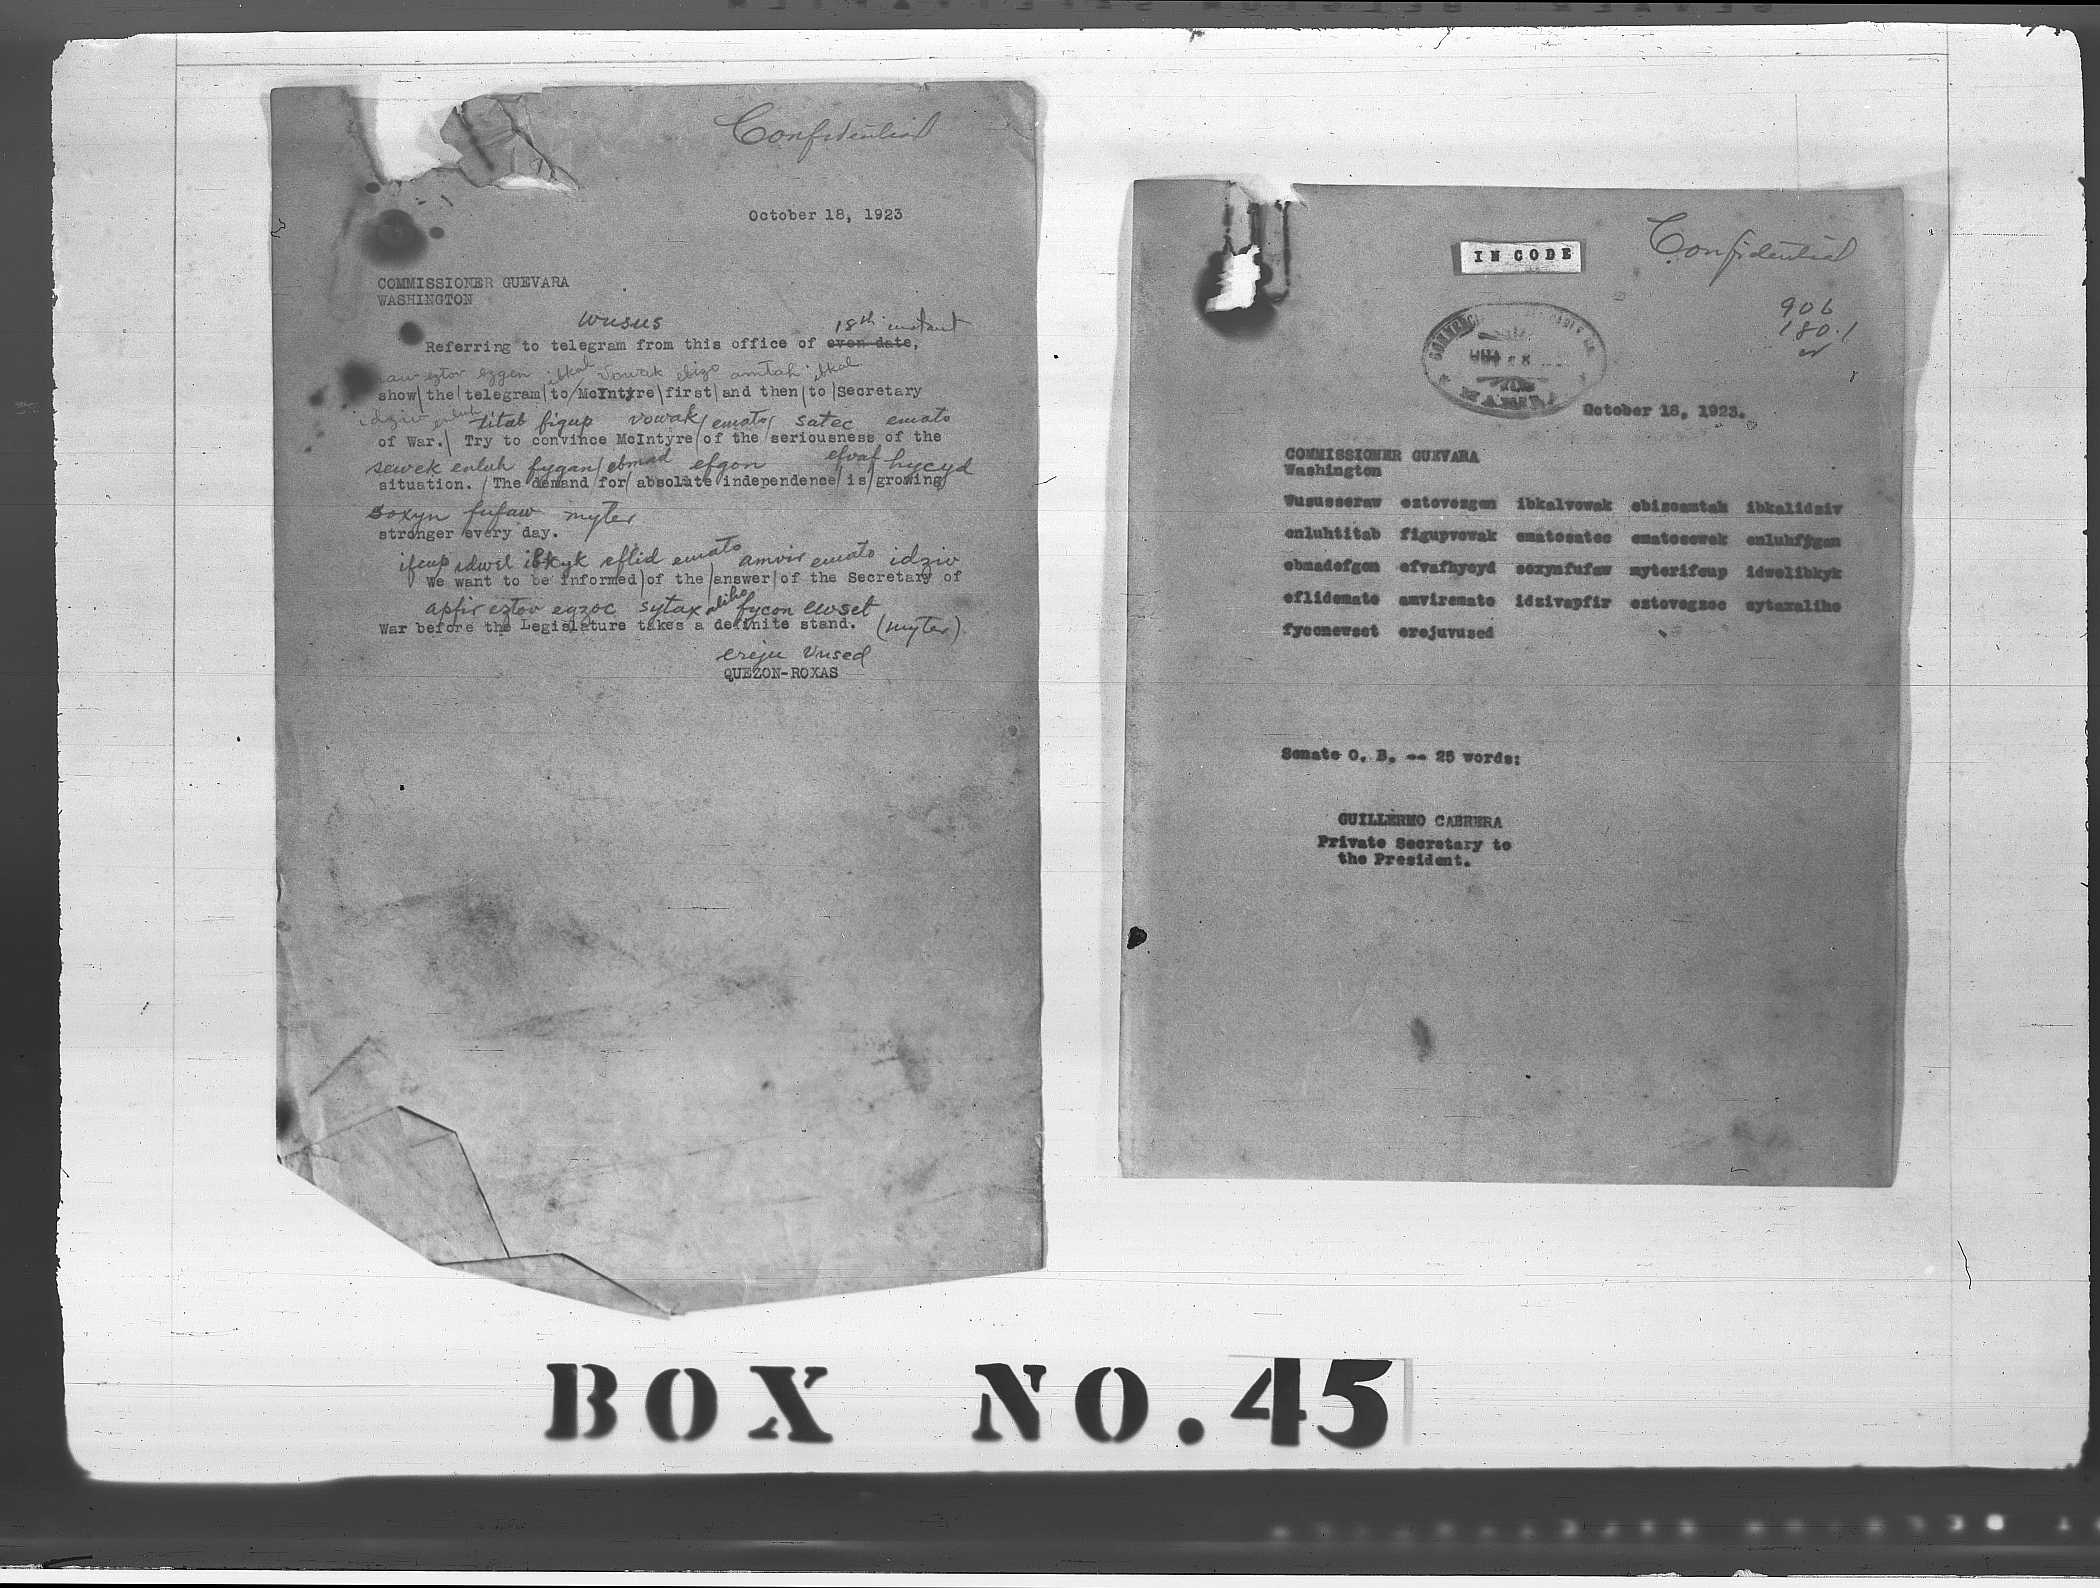 Confidential
October 18, 1923
COMMISSIONER GUEVARA
WASHINGTON
wusus 18th instant
Referring to telegram from this office of even date,
eztov ezgen ibkal vowak ebizo amtah ibkal
show the telegram to McIntyre first and then to Secretary
idziv enluh titab figup vowak emato satec emato
of War. Try to convince McIntyre of the seriousness of the
sewek enluh fygan ebmad efgon efvaf hycyd
situation. The demand for absolute independence is growing
soxyn fufaw myter
stronger every day.
ifcup idwel ibkyk eflid emato amvir emato idziv
We want to be informed of the answer of the Secretary of
apfir eztov egzoc sytax aliho fycon ewset
War before the Legislature takes a definite stand. (myter)
ereju vused
QUEZON-ROXAS
Confidential
IN CODE
906
180.1
MANILA
October 18, 1923.
COMMISSIONER GUEVARA
Washington
Wususseraw eztovezgen ibkalvowak ebizoamtah ibkalidziv
enluhtitab figupvowak ematosatec ematosewek enluhfygan
ebmadefgon efvafhycyd soxynfufaw myterifcup idwelibkyk
eflidemato amviremato idzivapfir eztovegzoc sytaxaliho
fyconewset erejuvused
Senate O. B. -- 25 words:
GUILLERMO CABRERA
Private Secretary to
the President.
BOX NO. 45